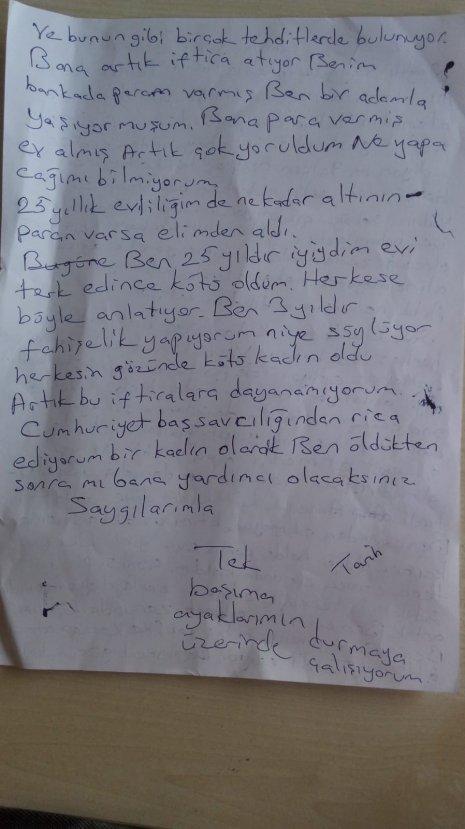 Ve bunun gibi birçok tehditlerde bulunuyor.
Bana artık iftira atıyor Benim
bankada param varmış Ben bir adamla
yaşıyor muşum. Bana para vermiş
ev almış Artık çok yoruldum Ne yapa
cağımı bilmiyorum
25 yıllık evliliğimde nekadar altının
paran varsa elimden aldı.
Bugüne Ben 25 yıldır iyiydim evi
terk edince kötü oldum. Herkese
böyle anlatıyor. Ben 3 yıldır
fahişelik yapıyorum niye söylüyor
herkesin gözünde kötü kadın oldu
Artık bu iftiralara dayanamıyorum.
Cumhuriyet başsavcılığından rica
ediyorum bir kadın olarak Ben öldükten
sonra mı bana yardımcı olacaksınız
Saygılarımla
Tek
başıma
ayaklarımın
üzerinde durmaya
çalışıyorum.
Tarih